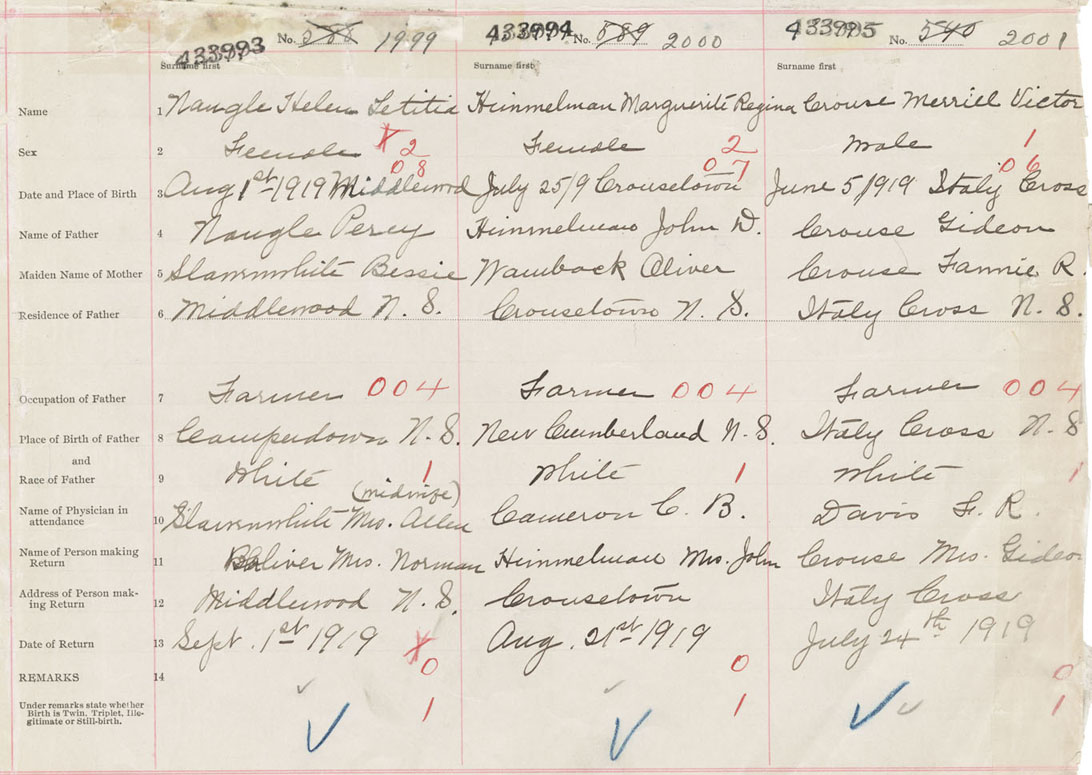 433993 No. 588 1999 433994 No. 589 2000 433995 No. 540 2001
Surname first Surname first Surname first
Name 1 Naugle Helen Letitia Himmelman Marguerite Regina Crouse Merrill Victor
Sex 2 Female X 2 Female 2 male 1
08 07 06
Date and Place of Birth 3 Aug 1st 1919 Middlewood July 25/9 Crousetown June 5/1919 Italy Cross
Name of Father 4 Naugle Percy Himmelman John D. Crouse Gideon
Maiden Name of Mother 5 Slawnwhite Bessie Wamback Oliver Crouse Fannie R.
Residence of Father 6 Middlewood N. S. Crousetown N. S. Italy Cross N. S.
Occupation of Father 7 Farmer 004 Farmer 004 Farmer 004
Place of Birth of Father 8 Camperdown N. S. New Cumberland N. S. Italy Cross N. S
and
Race of Father 9 White 1 White 1 White 1
(midwife)
Name of Physician in attendance 10 Slawnwhite Mrs. Allen Cameron C. B. Davis F. R.
Name of Person making Return 11 Oliver Mrs. Norman Himmelman Mrs. John Crouse Mrs. Gideon
Address of Person mak-ing Return 12 Middlewood N. S. Crousetown Italy Cross
Date of Return 13 Sept. 1st 1919 X Aug. 21st 1919 July 24th 1919
REMARKS 14 0 0 0
Under remarks state whether
Birth is Twin, Triplet, Ille-
gitimate or Still-birth. 1 1 1